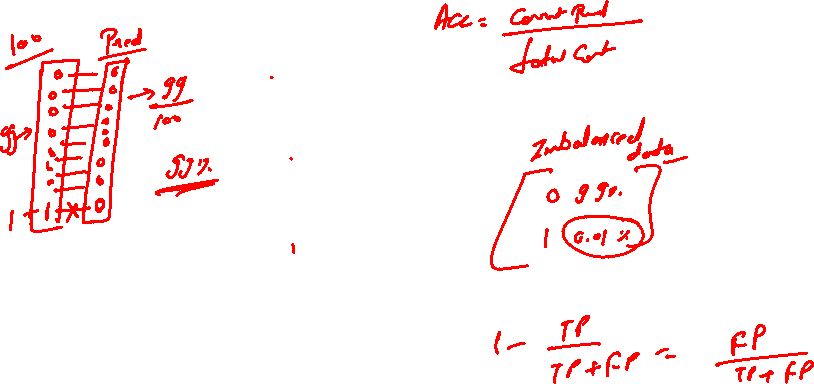 100 Pred
0 0
0 0
0 0
99 → 0 0 → 99/100
0 0
0 0
0 0 99%
0 0
1 - 1 x 0
Acc = Correct Pred / total Count
Imbalanced data
0 99%
1 0.01%
1 - TP / TP + FP = FP / TP + FP